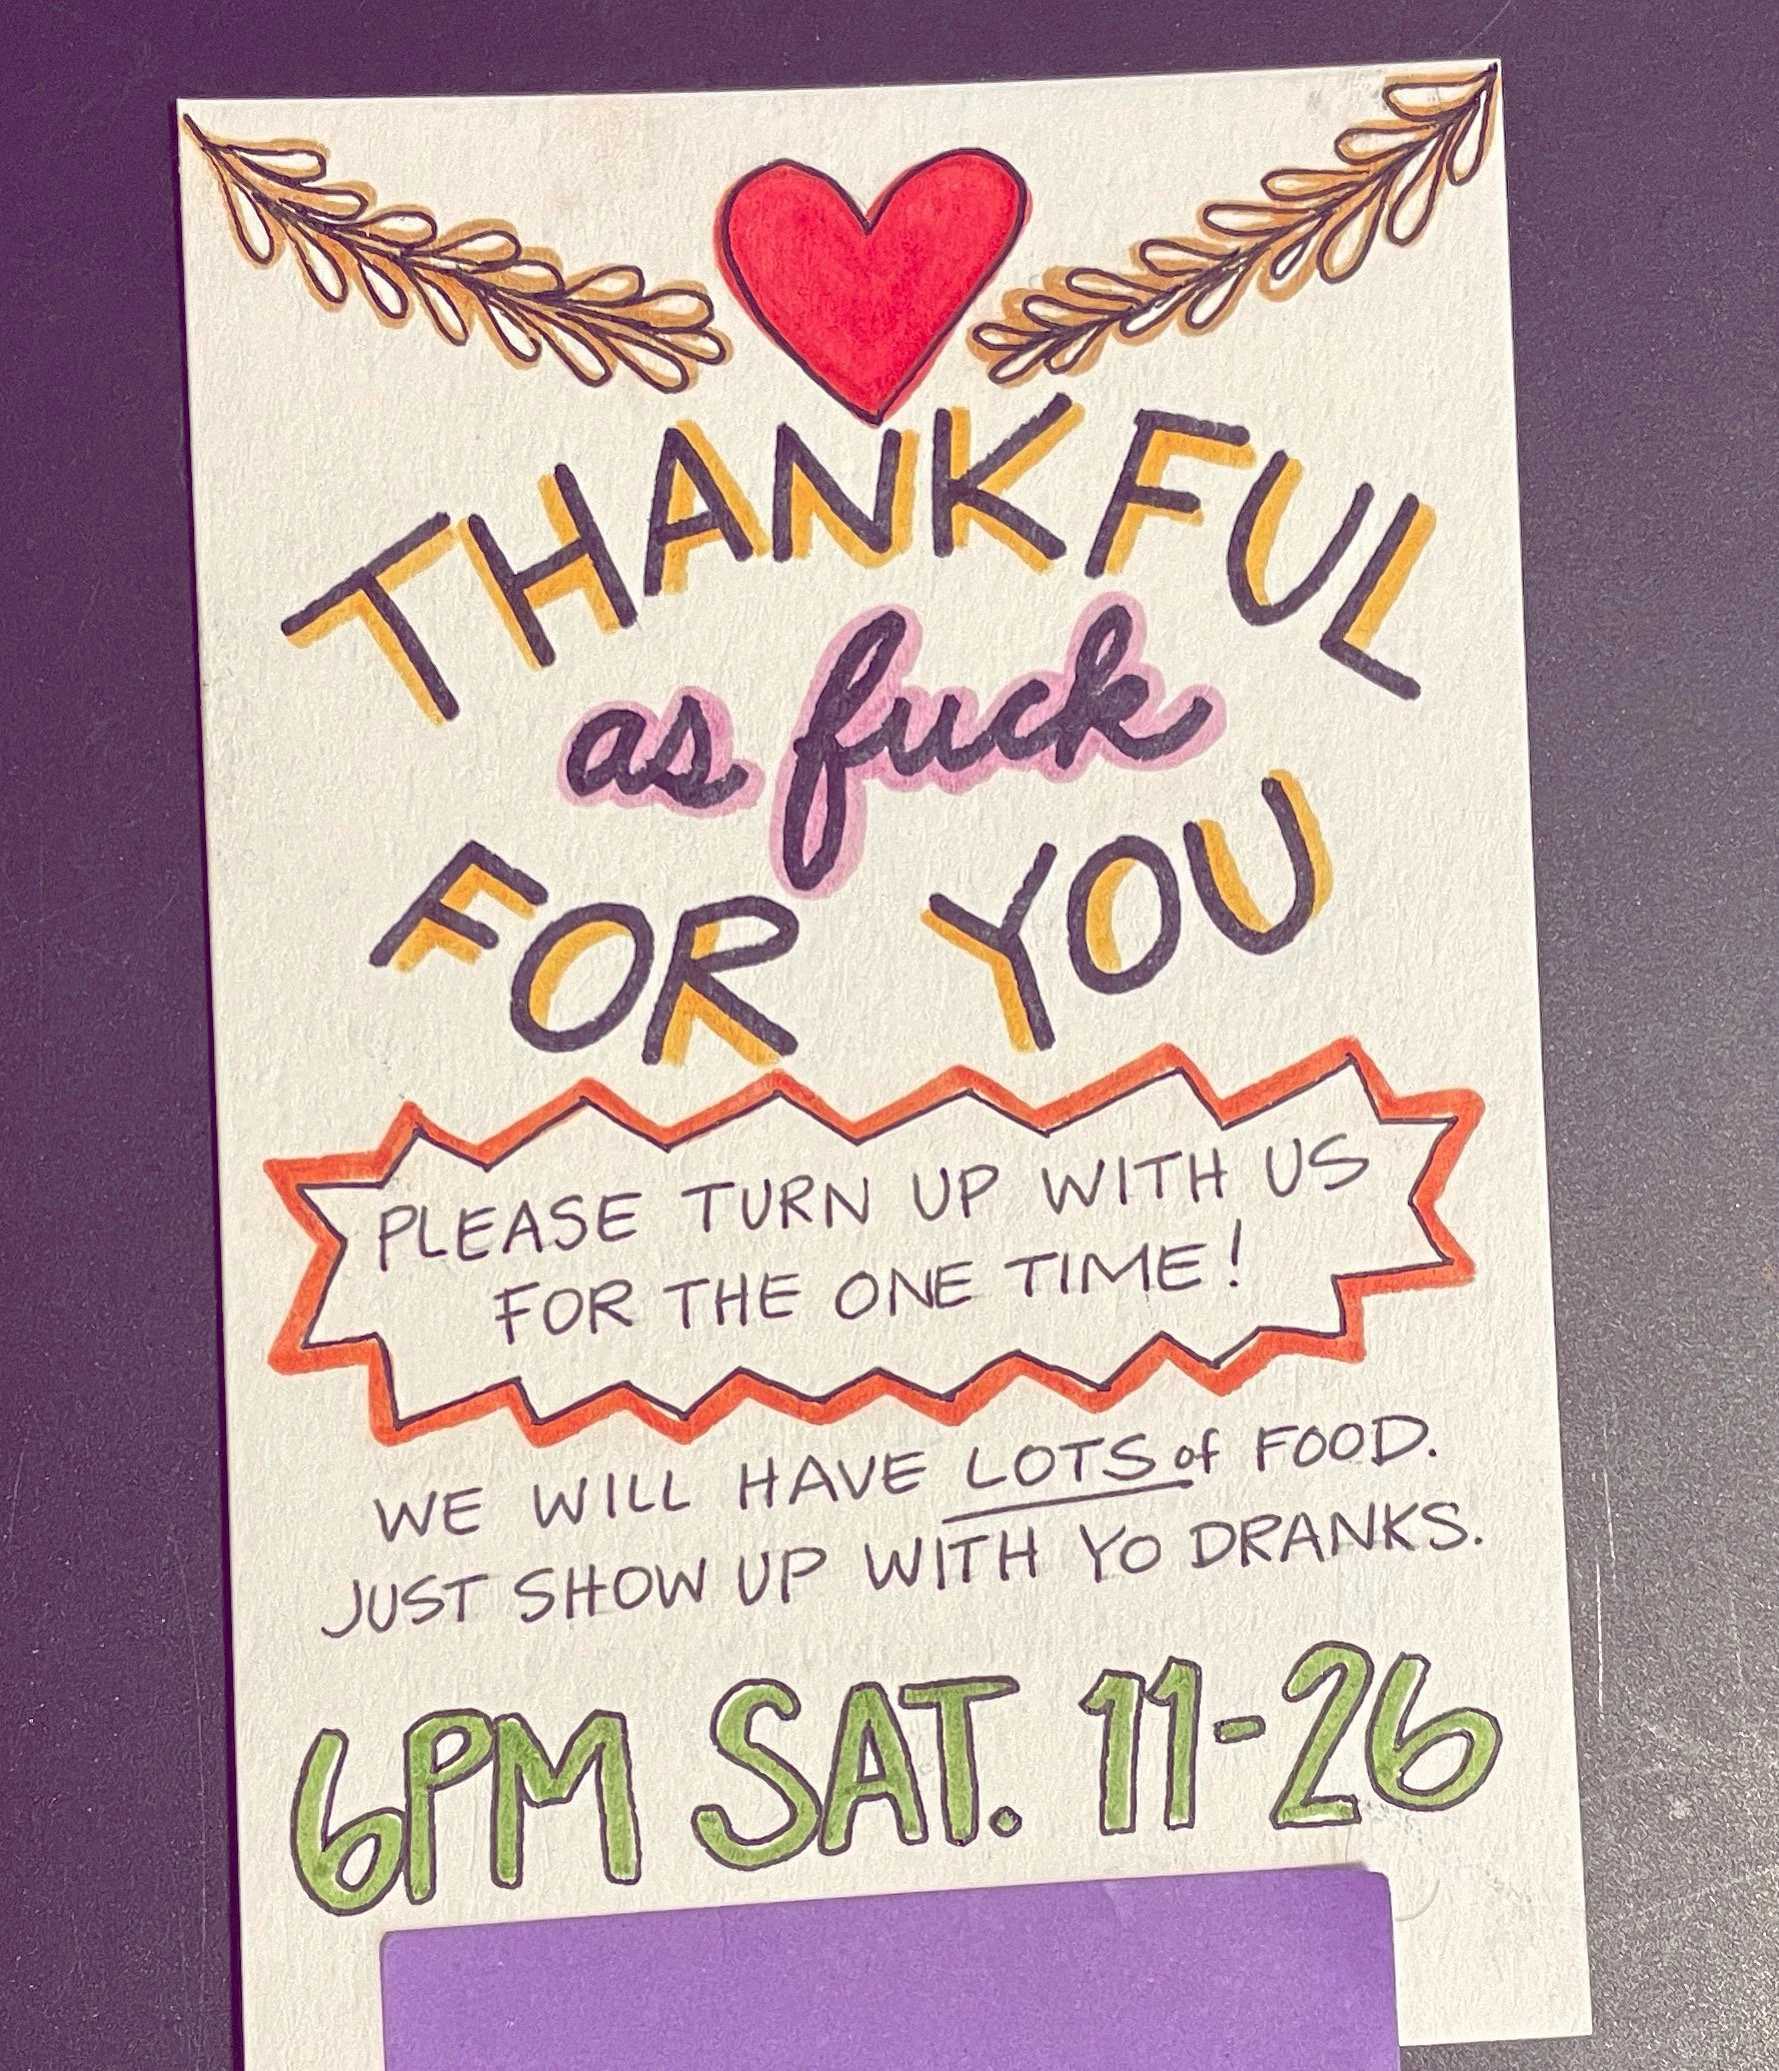 THANKFUL
as fuck
FOR YOU
PLEASE TURN UP WITH US
FOR THE ONE TIME!
WE WILL HAVE LOTS of FOOD.
JUST SHOW UP WITH YO DRANKS.
6PM SAT. 11-26